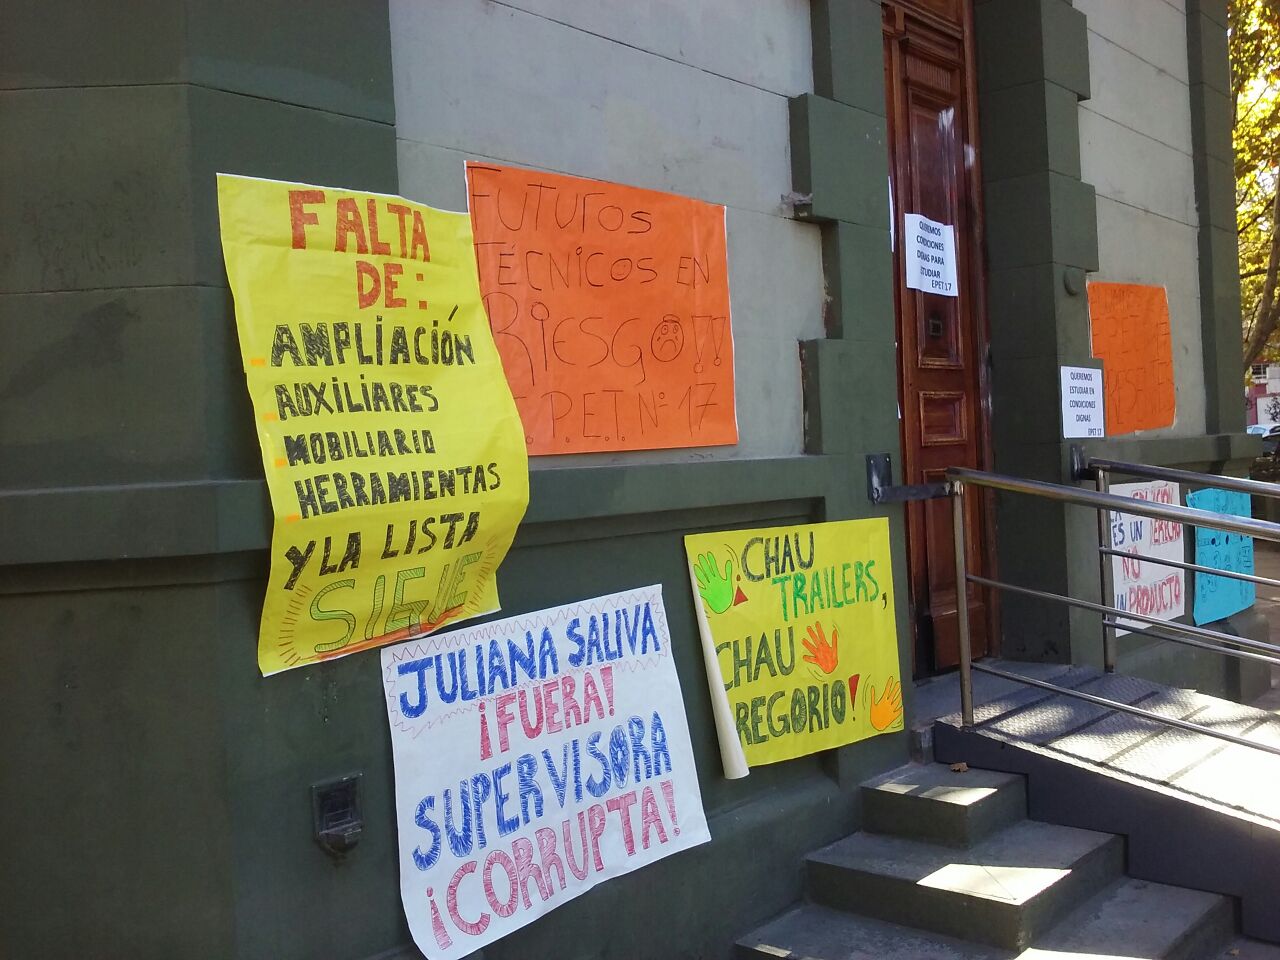 FALTA
DE:
AMPLIACIÓN
AUXILIARES
MOBILIARIO
HERRAMIENTAS
Y LA LISTA
SIGUE
FUTUROS
TÉCNICOS EN
RIESGO!!
E.P.E.T. Nº 17
JULIANA SALIVA
¡FUERA!
SUPERVISORA
¡CORRUPTA!
¡CHAU
TRAILERS,
CHAU
REGORIO!
QUEREMOS
CONDICIONES
DIGNAS PARA
ESTUDIAR
EPET 17
QUEREMOS
ESTUDIAR EN
CONDICIONES
DIGNAS
EPET 17
ES UN
NO
UN PRODUCTO